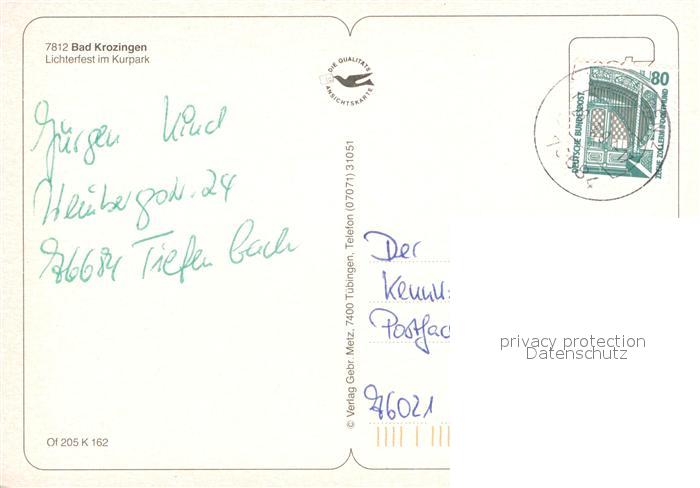 7812 Bad Krozingen
Lichterfest im Kurpark
DIE QUALITÄTS
ANSICHTSKARTE
80
DEUTSCHE BUNDESPOST
ZECHE ZOLLERN II DORTMUND
Jürgen Kind
24
76684 Tiefenbach
© Verlag Gebr. Metz, 7400 Tübingen, Telefon (07071) 31051
Der
Postfac
76021
privacy protection
Datenschutz
Of 205 K 162